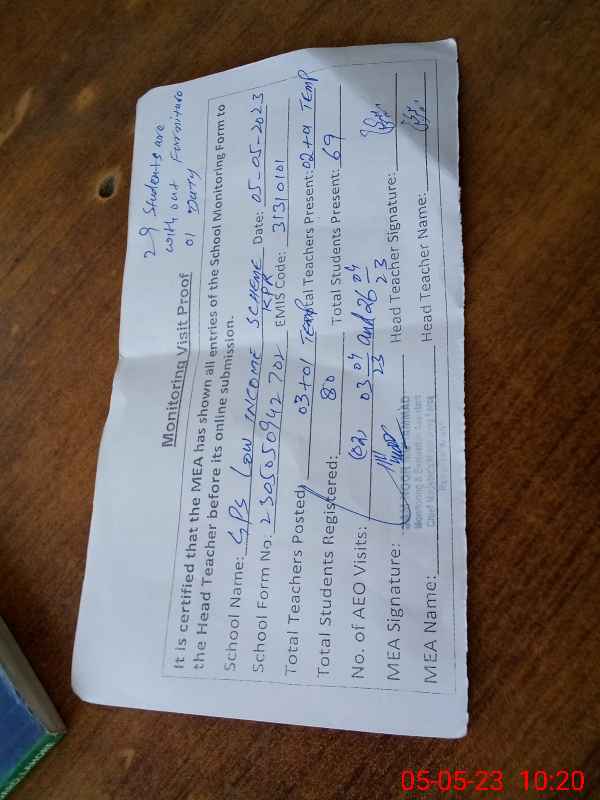 29 Students are
with out Furniture
01 Duty
Monitoring Visit Proof
It is certified that the MEA has shown all entries of the School Monitoring Form to
the Head Teacher before its online submission.
School Name: GPS LOW INCOME SCHEME KPR Date: 05-05-2023
School Form No: 2305050942702 EMIS Code: 31310101
Total Teachers Posted: 03+01 TEMP Total Teachers Present: 02+01 TEMP
Total Students Registered: 80 Total Students Present: 69
No. of AEO Visits: (02) 03 04/23 and 26 04/23
MEA Signature: Head Teacher Signature:
MUHAMMAD
Monitoring & Evaluation Assistant
MEA Name: Head Teacher Name:
05-05-23 10:20